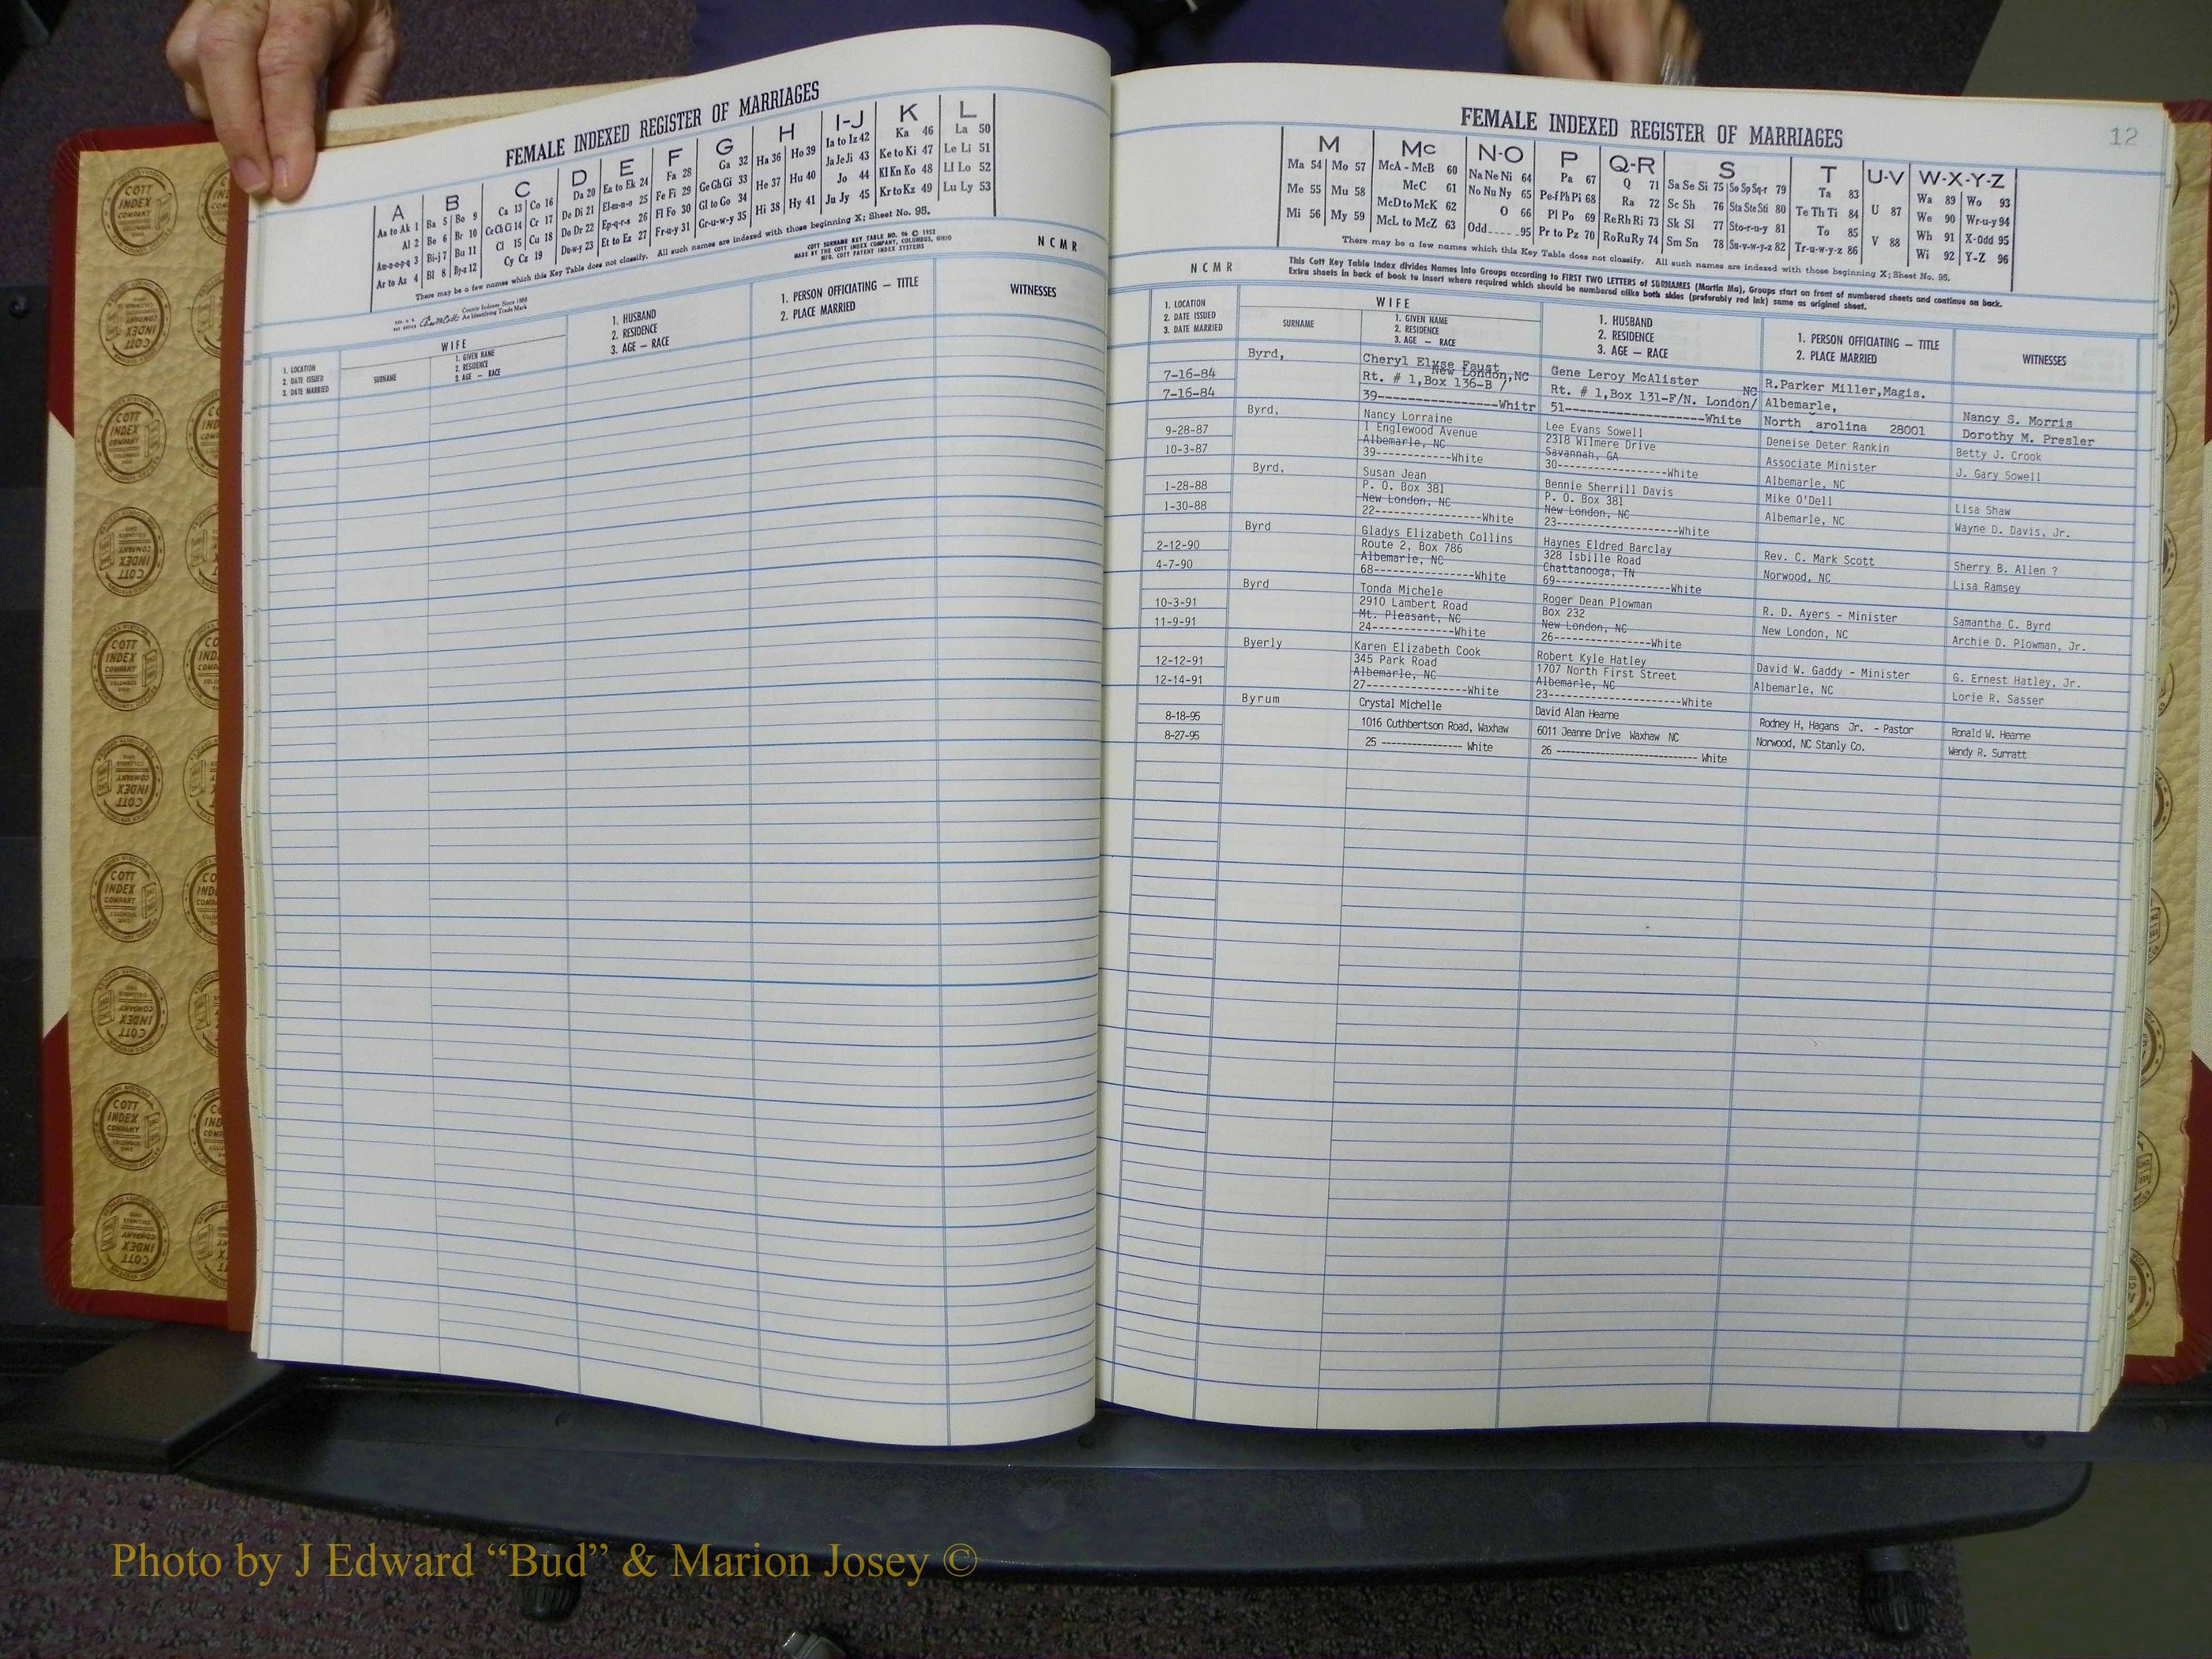 FEMALE INDEXED REGISTER OF MARRIAGES
A B C D E F G H I-J K L
Aa to Ak 1 Ba 5 Bo 9 Ca 13 Co 16 Da 20 Ea to Ek 24 Fa 28 Ga 32 Ha 36 Ho 39 Ia to Iz 42 Ka 46 La 50
Al 2 Be 6 Br 10 Ce Ch Ci 14 Cr 17 De Di 21 El-m-n-o 25 Fe Fi 29 Ge Gh Gi 33 He 37 Hu 40 Ja Je Ji 43 Ke to Ki 47 Le Li 51
An-o-p-q 3 Bi-j 7 Bu 11 Cl 15 Cu 18 Do Dr 22 Ep-q-r-s 26 Fl Fo 30 Gl to Go 34 Hi 38 Hy 41 Jo 44 Kl Kn Ko 48 Ll Lo 52
Ar to Az 4 Bl 8 By-z 12 Cy Cz 19 Du-w-y 23 Et to Ez 27 Fr-u-y 31 Gr-u-w-y 35 Ju Jy 45 Kr to Kz 49 Lu Ly 53
There may be a few names which this Key Table does not classify. All such names are indexed with those beginning X; Sheet No. 95.
County Indexes Since 1888
An Identifying Trade Mark
COTT SURNAME KEY TABLE NO. 96 © 1952
MADE BY THE COTT INDEX COMPANY, COLUMBUS, OHIO
MFG. COTT PATENT INDEX SYSTEMS
N C M R
1. LOCATION
2. DATE ISSUED
3. DATE MARRIED
WIFE
SURNAME
1. GIVEN NAME
2. RESIDENCE
3. AGE — RACE
1. HUSBAND
2. RESIDENCE
3. AGE — RACE
1. PERSON OFFICIATING — TITLE
2. PLACE MARRIED
WITNESSES
12
FEMALE INDEXED REGISTER OF MARRIAGES
M Mc N-O P Q-R S T U-V W-X-Y-Z
Ma 54 Mo 57 McA - McB 60 Na Ne Ni 64 Pa 67 Q 71 Sa Se Si 75 So Sp Sq-r 79 Ta 83 U 87 Wa 89 Wo 93
Me 55 Mu 58 McC 61 No Nu Ny 65 Pe-f Ph Pi 68 Ra 72 Sc Sh 76 Sta Ste Sti 80 Te Th Ti 84 V 88 We 90 Wr-u-y 94
Mi 56 My 59 McD to McK 62 O 66 Pl Po 69 Re Rh Ri 73 Sk Sl 77 Sto-r-u-y 81 To 85 Wh 91 X-Odd 95
McL to McZ 63 Odd 95 Pr to Pz 70 Ro Ru Ry 74 Sm Sn 78 Su-v-w-y-z 82 Tr-u-w-y-z 86 Wi 92 Y-Z 96
There may be a few names which this Key Table does not classify. All such names are indexed with those beginning X; Sheet No. 95.
This Cott Key Table Index divides Names into Groups according to FIRST TWO LETTERS of SURNAMES (Martin Ma), Groups start on front of numbered sheets and continue on back.
Extra sheets in back of book to insert where required which should be numbered alike both sides (preferably red ink) same as original sheet.
N C M R
1. LOCATION
2. DATE ISSUED
3. DATE MARRIED
WIFE
SURNAME
1. GIVEN NAME
2. RESIDENCE
3. AGE — RACE
1. HUSBAND
2. RESIDENCE
3. AGE — RACE
1. PERSON OFFICIATING — TITLE
2. PLACE MARRIED
WITNESSES
Byrd, Cheryl Elyse Faust Gene Leroy McAlister R.Parker Miller,Magis.
7-16-84 Rt. # 1,Box 136-B / New London,NC Rt. # 1,Box 131-F/N. London/ NC Albemarle, Nancy S. Morris
7-16-84 39-----------------Whitr 51--------------------White North arolina 28001 Dorothy M. Presler
Byrd, Nancy Lorraine Lee Evans Sowell Deneise Deter Rankin Betty J. Crook
9-28-87 1 Englewood Avenue 2318 Wilmere Drive Associate Minister J. Gary Sowell
Albemarle, NC Savannah, GA Albemarle, NC
10-3-87 39------------White 30----------------White
Byrd, Susan Jean Bennie Sherrill Davis Mike O'Dell Lisa Shaw
1-28-88 P. O. Box 381 P. O. Box 381 Albemarle, NC Wayne D. Davis, Jr.
New London, NC New London, NC
1-30-88 22----------------White 23------------------White
Byrd Gladys Elizabeth Collins Haynes Eldred Barclay Rev. C. Mark Scott Sherry B. Allen ?
2-12-90 Route 2, Box 786 328 Isbille Road Norwood, NC Lisa Ramsey
Albemarle, NC Chattanooga, TN
4-7-90 68---------------White 69-----------------White
Byrd Tonda Michele Roger Dean Plowman R. D. Ayers - Minister Samantha C. Byrd
10-3-91 2910 Lambert Road Box 232 New London, NC Archie D. Plowman, Jr.
Mt. Pleasant, NC New London, NC
11-9-91 24------------White 26---------------White
Byerly Karen Elizabeth Cook Robert Kyle Hatley David W. Gaddy - Minister G. Ernest Hatley, Jr.
12-12-91 345 Park Road 1707 North First Street Albemarle, NC Lorie R. Sasser
Albemarle, NC Albemarle, NC
12-14-91 27---------------White 23--------------------White
Byrum Crystal Michelle David Alan Hearne Rodney H, Hagans Jr. - Pastor Ronald W. Hearne
8-18-95 1016 Cuthbertson Road, Waxhaw 6011 Jeanne Drive Waxhaw NC Norwood, NC Stanly Co. Wendy R. Surratt
8-27-95 25 ---------------- White 26 --------------------------- White
COTT INDEX COMPANY COLUMBUS OHIO
Photo by J Edward “Bud” & Marion Josey ©